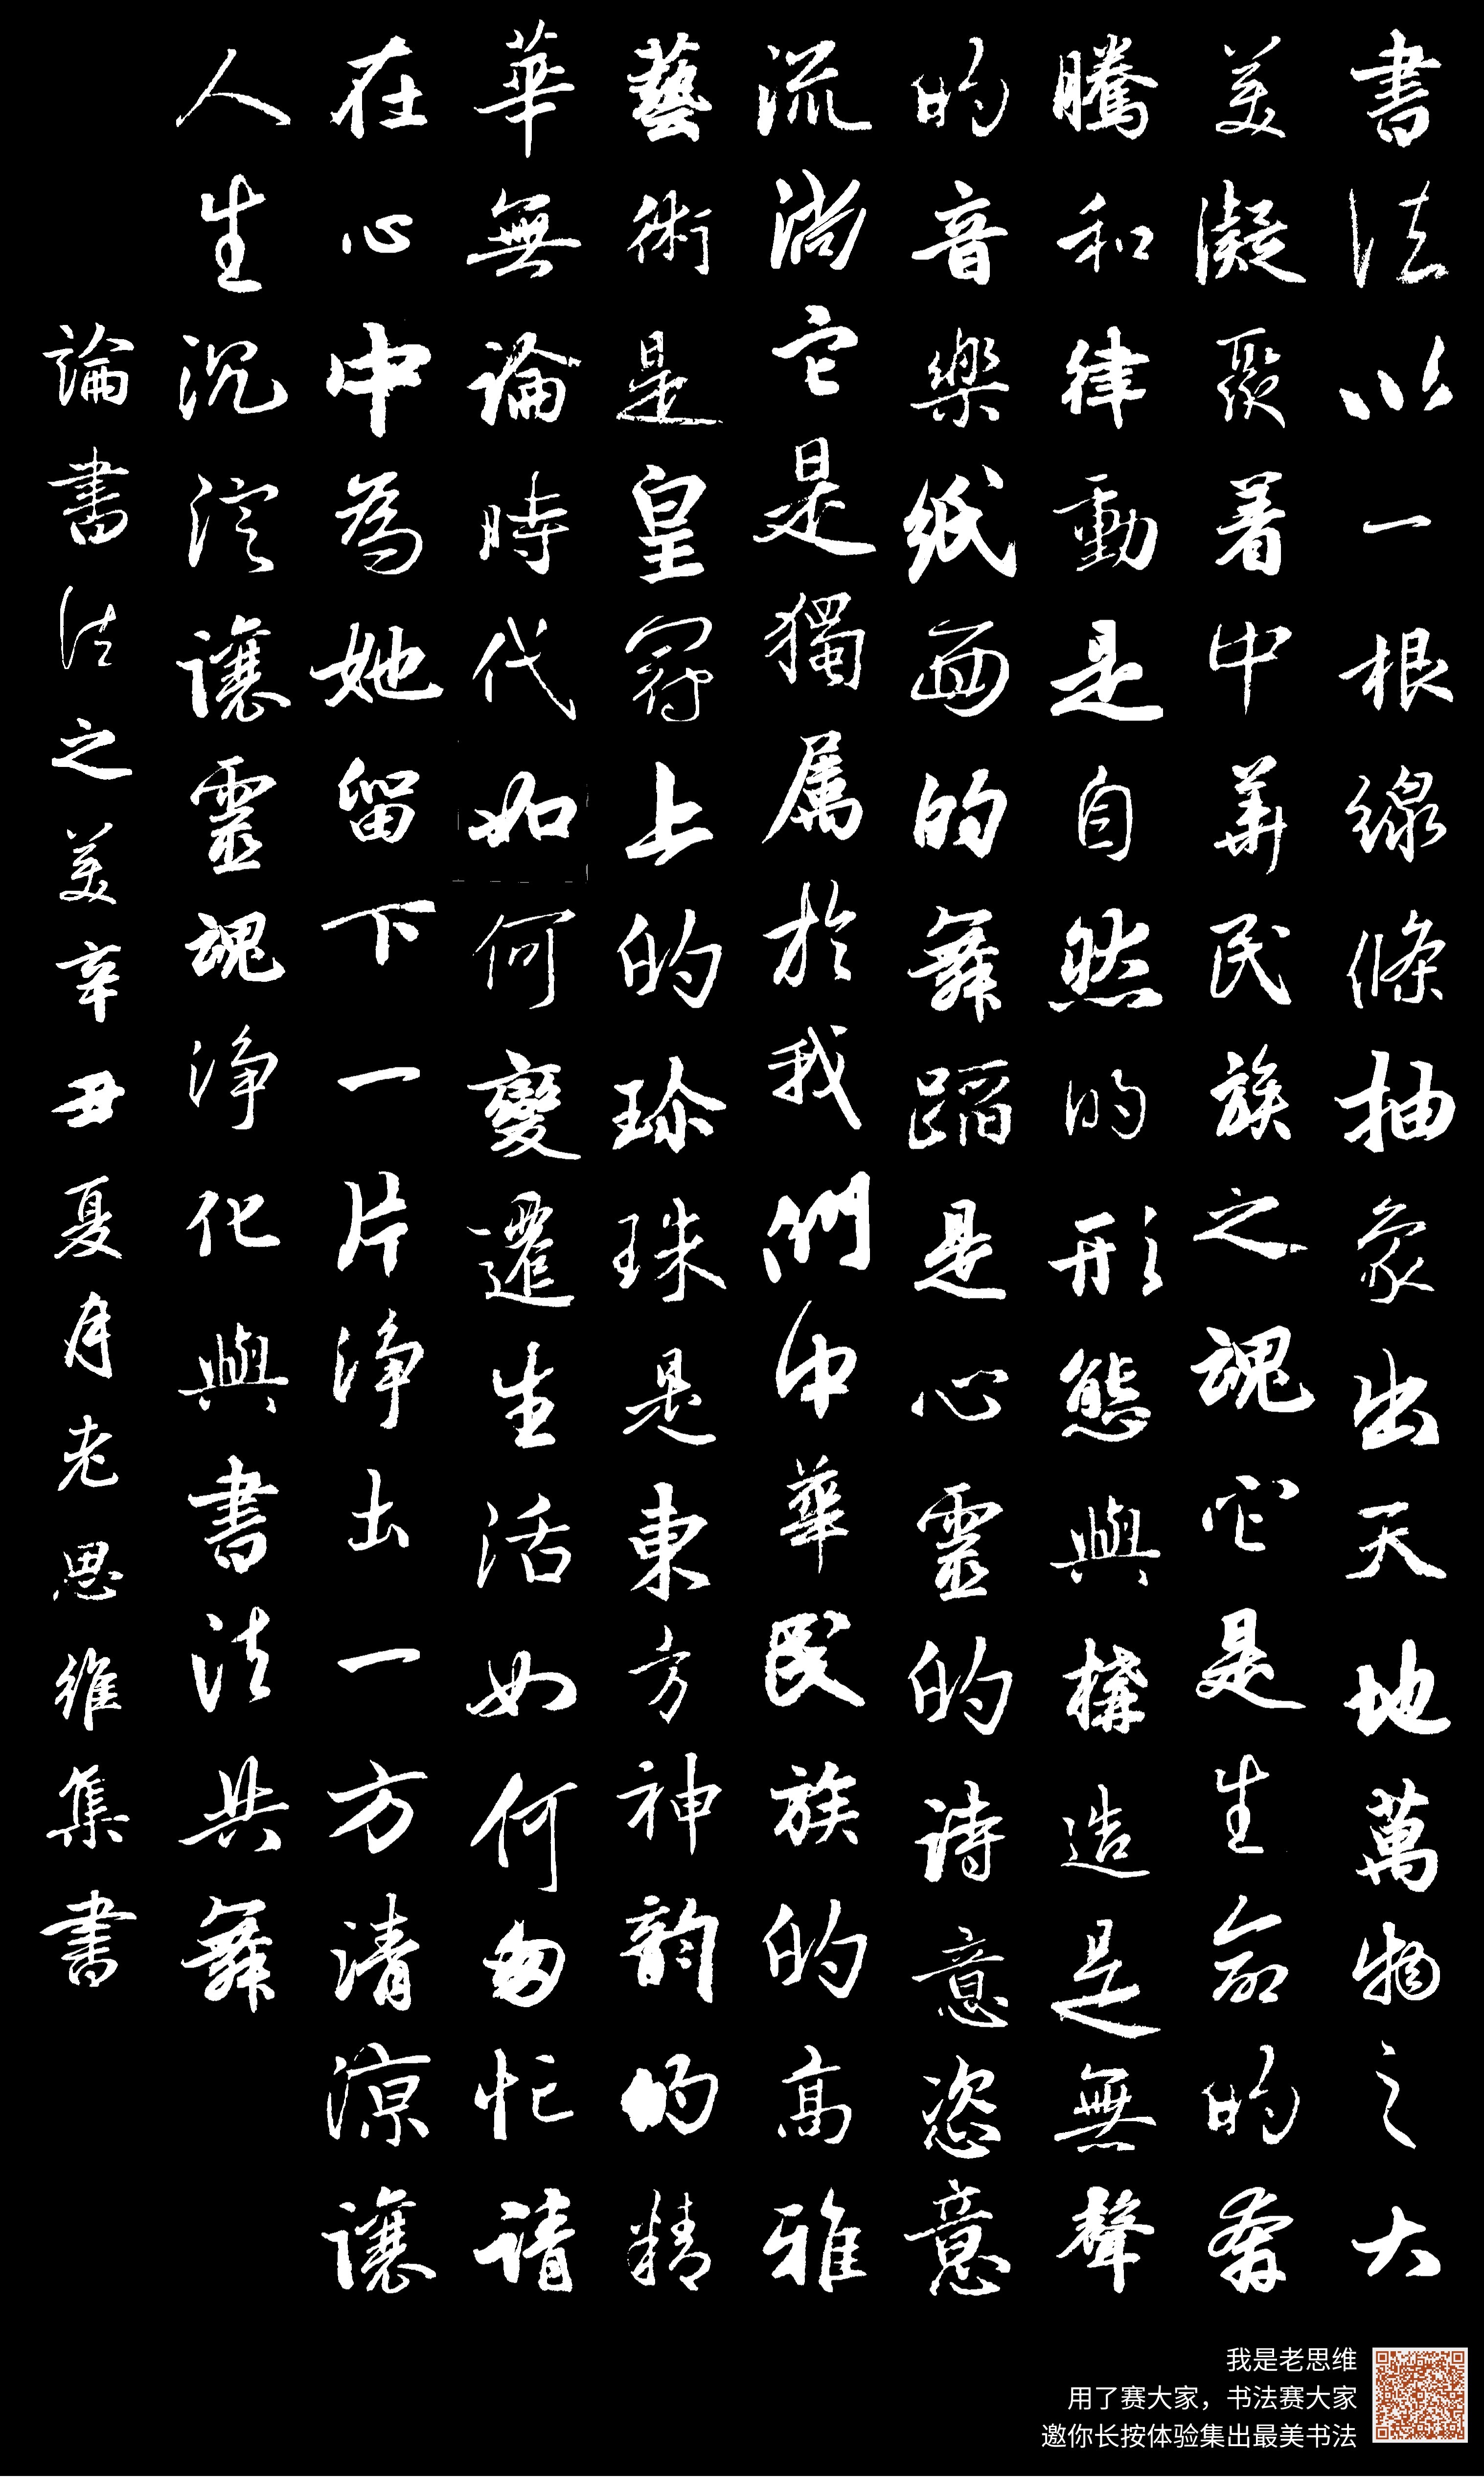 書法以一根線條抽象出天地萬物之大
美凝聚着中華民族之魂它是生命的奔
騰和律動是自然的形態與構造是無聲
的音樂紙面的舞蹈是心靈的詩意恣意
流淌它是獨属於我們中華民族的高雅
藝術是皇冠上的珍珠是東方神韵的精
華無論時代如何變遷生活如何匆忙請
在心中為她留下一片净土一方清凉讓
人生沉淀讓靈魂净化與書法共舞
論書法之美辛丑夏月老思維集書
我是老思维
用了赛大家，书法赛大家
邀你长按体验集出最美书法